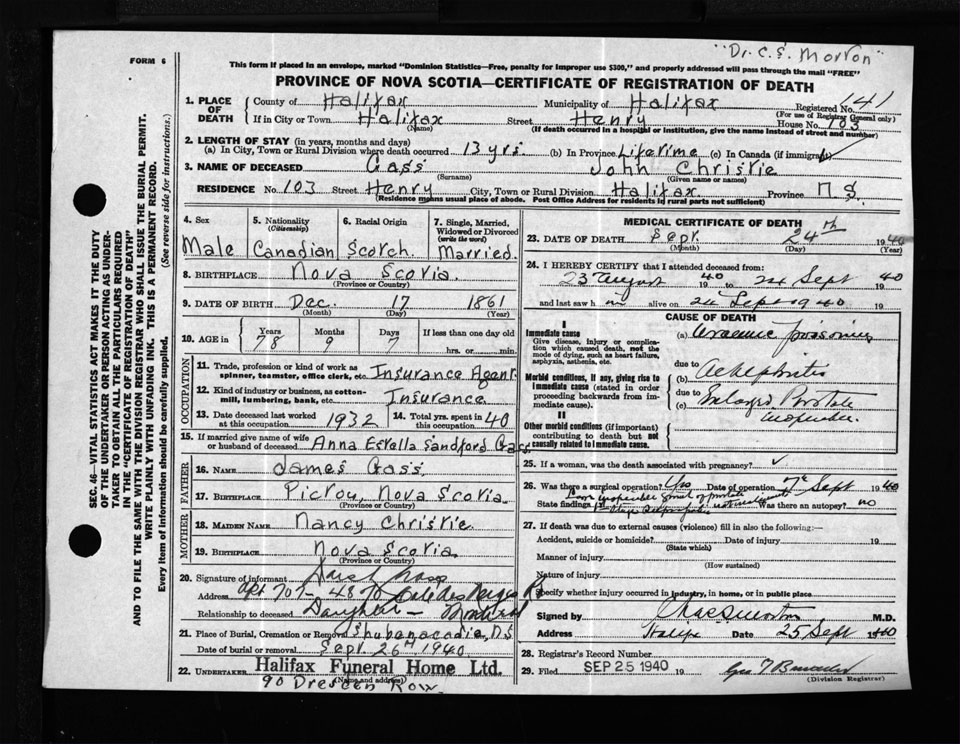 "Dr. C. S. Morton"
FORM 6
This form if placed in an envelope, marked "Dominion Statistics—Free, penalty for improper use $300," and properly addressed will pass through the mail "FREE"
PROVINCE OF NOVA SCOTIA—CERTIFICATE OF REGISTRATION OF DEATH
1. PLACE OF DEATH County of Halifax Municipality of Halifax Registered No. 141
(For use of Registrar General only)
If in City or Town Halifax Street Henry House No. 103
(Name) (If death occurred in a hospital or institution, give the name instead of street and number)
2. LENGTH OF STAY (in years, months and days)
(a) In City, Town or Rural Division where death occurred 13 yrs. (b) In Province Lifetime (c) In Canada (if immigrant)
3. NAME OF DECEASED Gass John Christie
(Surname) (Given name or names)
RESIDENCE No. 103 Street Henry City, Town or Rural Division Halifax Province N.S.
(Residence means usual place of abode. Post Office Address for residents in rural parts not sufficient)
4. Sex Male
5. Nationality (Citizenship) Canadian
6. Racial Origin Scotch
7. Single, Married, Widowed or Divorced (write the word) Married.
8. BIRTHPLACE Nova Scotia
(Province or Country)
9. DATE OF BIRTH Dec. 17 1861
(Month) (Day) (Year)
10. AGE in Years 78 Months 9 Days 7 If less than one day old
hrs. or min.
OCCUPATION
11. Trade, profession or kind of work as spinner, teamster, office clerk, etc. Insurance Agent.
12. Kind of industry or business, as cotton-mill, lumbering, bank, etc. Insurance
13. Date deceased last worked at this occupation 1932 14. Total yrs. spent in this occupation 40
15. If married give name of wife or husband of deceased Anna Estella Sandford Gass
FATHER
16. NAME James Gass
17. BIRTHPLACE Pictou, Nova Scotia
(Province or Country)
MOTHER
18. MAIDEN NAME Nancy Christie
19. BIRTHPLACE Nova Scotia
(Province or Country)
20. Signature of informant Gass
Address Apt 707- 4870 Cote des Neiges R
Relationship to deceased Daughter - Montreal
21. Place of Burial, Cremation or Removal Shubenacadie, N.S.
Date of burial or removal Sept. 26th 1940
22. UNDERTAKER Halifax Funeral Home Ltd.
(Name and address)
90 Dresden Row.
MEDICAL CERTIFICATE OF DEATH
23. DATE OF DEATH Sept. 24th 1940
(Month) (Day) (Year)
24. I HEREBY CERTIFY that I attended deceased from:
23 August 1940 to 24 Sept 1940
and last saw h im alive on 24 Sept 1940 19
CAUSE OF DEATH
I
Immediate cause (a) Uraemic poisoning
Give disease, injury or complication which caused death, not the mode of dying, such as heart failure, asphyxia, asthenia, etc.
due to
(b) Nephritis
Morbid conditions, if any, giving rise to immediate cause (stated in order proceeding backwards from immediate cause).
due to
(c) Prostate
inoperable
II
Other morbid conditions (if important) contributing to death but not causally related to immediate cause.
25. If a woman, was the death associated with pregnancy?
26. Was there a surgical operation? Yes Date of operation 7th Sept 1940
State findings Was there an autopsy? no
27. If death was due to external causes (violence) fill in also the following:—
Accident, suicide or homicide? Date of injury 19
(State which)
Manner of injury
(How sustained)
Nature of injury
Specify whether injury occurred in industry, in home, or in public place
Signed by Chas S Morton M.D.
Address Halifax Date 25 Sept 1940
28. Registrar's Record Number
29. Filed SEP 25 1940 19
(Division Registrar)
SEC. 46—VITAL STATISTICS ACT MAKES IT THE DUTY
OF THE UNDERTAKER OR PERSON ACTING AS UNDERTAKER
TO OBTAIN ALL THE PARTICULARS REQUIRED
IN THE "CERTIFICATE OF REGISTRATION OF DEATH"
AND TO FILE THE SAME WITH THE DIVISION REGISTRAR WHO SHALL ISSUE THE BURIAL PERMIT.
WRITE PLAINLY WITH UNFADING INK. THIS IS A PERMANENT RECORD.
Every item of information should be carefully supplied. (See reverse side for instructions.)